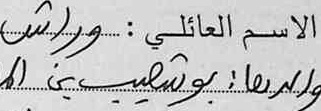 الاسم العائلي : وراش
والدها : بوشعيب بن